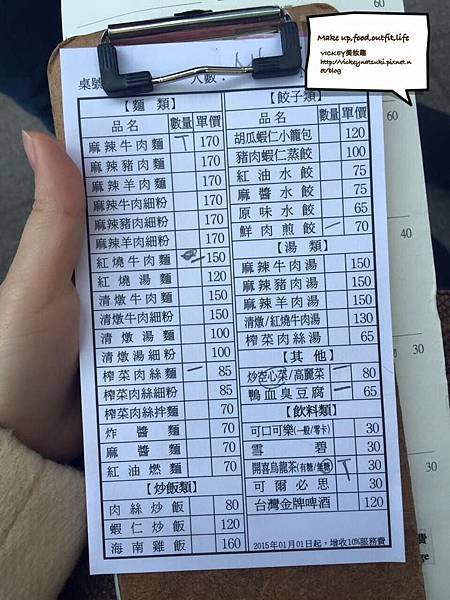 Make up,food,outfit,life
VICKEY美妝趣
http://vickeynatsuki.pixnet.n
et/blog
桌號
人數：
【麵 類】
品名 數量 單價
麻辣牛肉麵 T 170
麻辣豬肉麵 170
麻辣羊肉麵 170
麻辣牛肉細粉 170
麻辣豬肉細粉 170
麻辣羊肉細粉 170
紅燒牛肉麵 150
紅燒湯麵 120
清燉牛肉麵 150
清燉牛肉細粉 150
清燉湯麵 100
清燉湯細粉 100
榨菜肉絲麵 一 85
榨菜肉絲細粉 85
榨菜肉絲拌麵 70
炸醬麵 70
麻醬麵 70
紅油燃麵 70
【炒飯類】
肉絲炒飯 80
蝦仁炒飯 120
海南雞飯 160
【餃子類】
品名 數量 單價
胡瓜蝦仁小籠包 120
豬肉蝦仁蒸餃 100
紅油水餃 75
麻醬水餃 75
原味水餃 65
鮮肉煎餃 一 70
【湯 類】
麻辣牛肉湯 150
麻辣豬肉湯 150
麻辣羊肉湯 150
清燉/紅燒牛肉湯 130
榨菜肉絲湯 65
【其 他】
炒空心菜/高麗菜 一 80
鴨血臭豆腐 一 65
【飲料類】
可口可樂(一般/零卡) 30
雪碧 30
開喜烏龍茶(有糖/無糖) T 30
可爾必思 30
台灣金牌啤酒 120
2015年01月01日起，增收10%服務費
60
40
30
20
10
費
ge